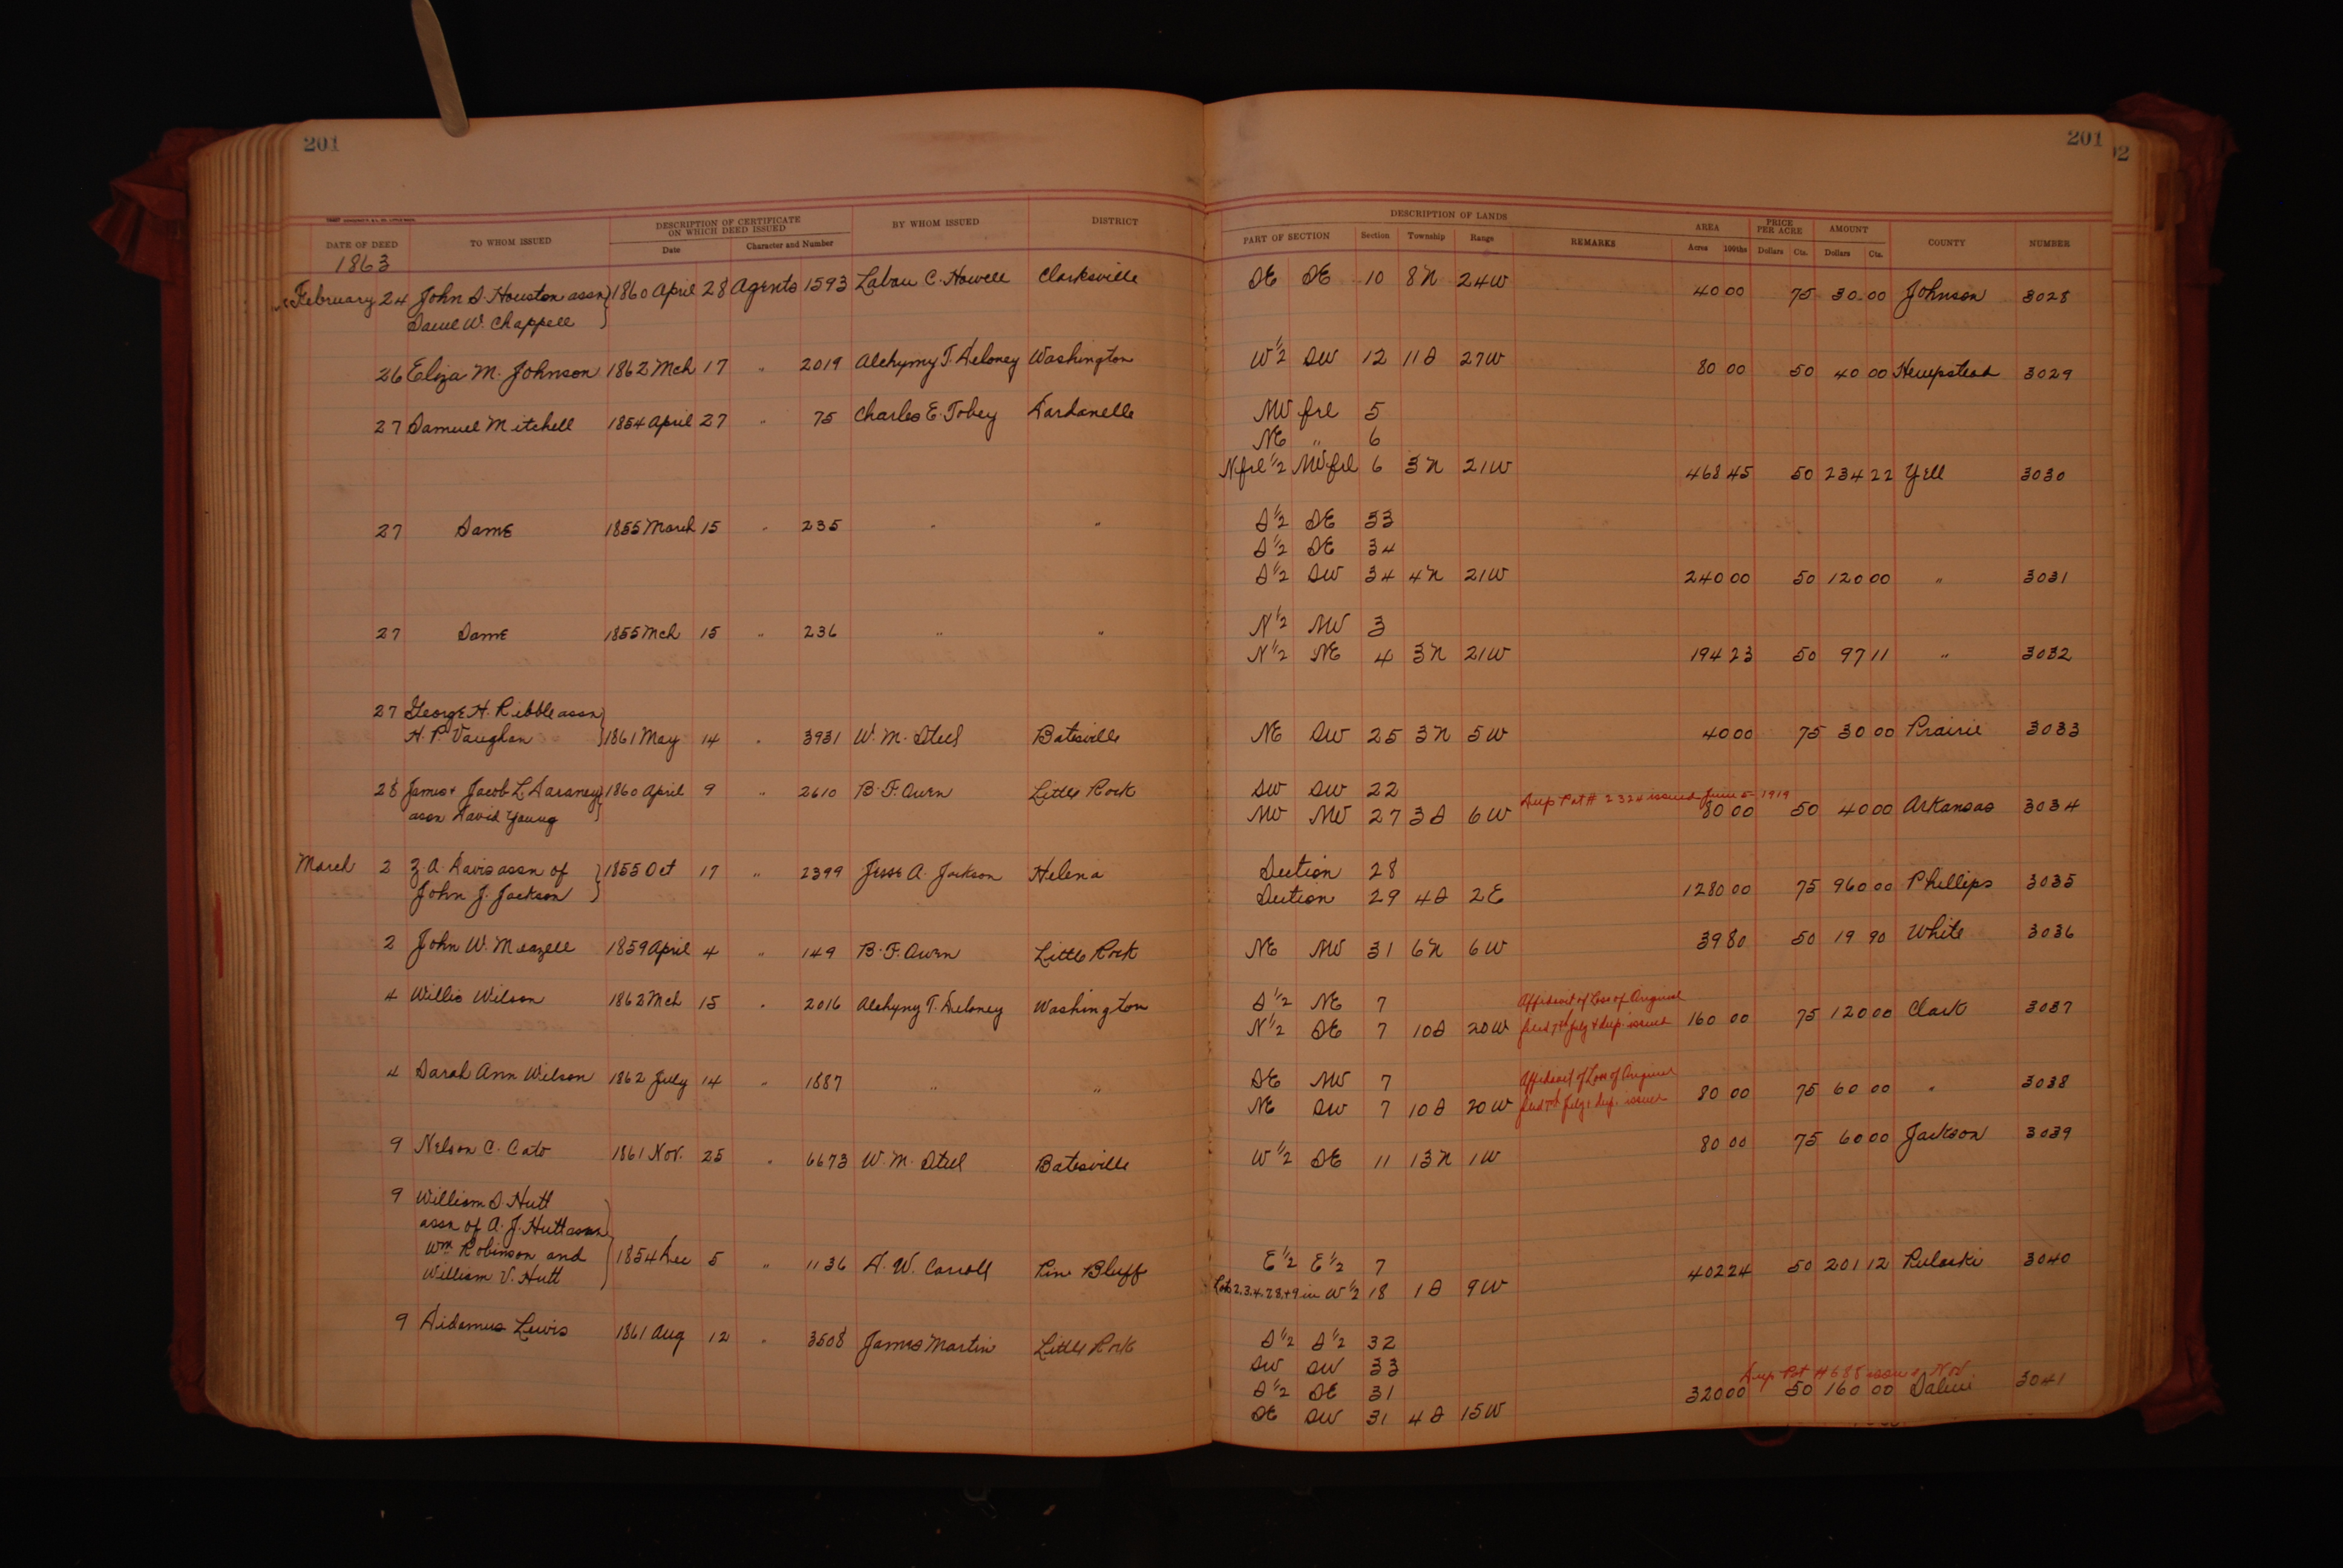 201
201
02
DATE OF DEED TO WHOM ISSUED DESCRIPTION OF CERTIFICATE ON WHICH DEED ISSUED Date Character and Number BY WHOM ISSUED DISTRICT DESCRIPTION OF LANDS PART OF SECTION Section Township Range REMARKS AREA Acres 100ths PRICE PER ACRE Dollars Cts. AMOUNT Dollars Cts. COUNTY NUMBER
1863
February 24 John S. Houston assn 1860 April 28 Agents 1593 Laban C. Howell Clarksville SE SE 10 8N 24W 40 00 75 30 00 Johnson 3028
W. Chappell
26 Eliza M. Johnson 1862 Mch 17 " 2019 Alchymy T. Deloney Washington W 1/2 SW 12 11S 27W 80 00 50 40 00 Hempstead 3029
27 Samuel Mitchell 1854 April 27 " 75 Charles E. Tobey Dardanelle NW frl 5
NE " 6
N frl 1/2 NW frl 6 3N 21W 468 45 50 234 22 Yell 3030
27 Same 1855 March 15 " 235 " " S 1/2 SE 33
S 1/2 SE 34
S 1/2 SW 34 4N 21W 240 00 50 120 00 " 3031
27 Same 1855 Mch 15 " 236 " " N 1/2 NW 3
N 1/2 NE 4 3N 21W 194 23 50 97 11 " 3032
27 George H. Ribble assn
H. P. Vaughan 1861 May 14 " 3931 W. M. Steel Batesville NE SW 25 3N 5W 40 00 75 30 00 Prairie 3033
28 James & Jacob L. 1860 April 9 " 2610 B. F. Owen Little Rock SW SW 22
Dup Pat # 2324 issued June 5- 1919
assn David Young NW NW 27 3S 6W 80 00 50 40 00 Arkansas 3034
March 2 Z. A. Davis assn of 1855 Oct 17 " 2399 Jesse A. Jackson Helena Section 28
John J. Jackson Section 29 4S 2E 1280 00 75 960 00 Phillips 3035
2 John W. Meazell 1859 April 4 " 149 B. F. Owen Little Rock NE NW 31 6N 6W 39 80 50 19 90 White 3036
4 Willis Wilson 1862 Mch 15 " 2016 Alchymy T. Deloney Washington S 1/2 NE 7 Affidavit of Loss of Original
N 1/2 SE 7 10S 20W & dup. issued 160 00 75 120 00 Clark 3037
4 Sarah Ann Wilson 1862 July 14 " 1887 " " SE NW 7 Affidavit of Loss of Original
NE SW 7 10S 20W dup. issued 80 00 75 60 00 " 3038
9 Nelson C. Cato 1861 Nov. 25 " 6673 W. M. Steel Batesville W 1/2 SE 11 13N 1W 80 00 75 60 00 Jackson 3039
9 William S. Hutt
assn of A. J. Hutt assn
Wm Robinson and 1854 Dec 5 " 1136 D. W. Carroll Pine Bluff E 1/2 E 1/2 7
William V. Hutt Lots 2.3.4.7.8.+9 in W 1/2 18 1S 9W 402 24 50 201 12 Pulaski 3040
9 Didamus Lewis 1861 Aug 12 " 3508 James Martin Little Rock S 1/2 S 1/2 32
SW SW 33
Dup Pat # 688 issued
S 1/2 SE 31
SE SW 31 4S 15W 320 00 50 160 00 Saline 3041